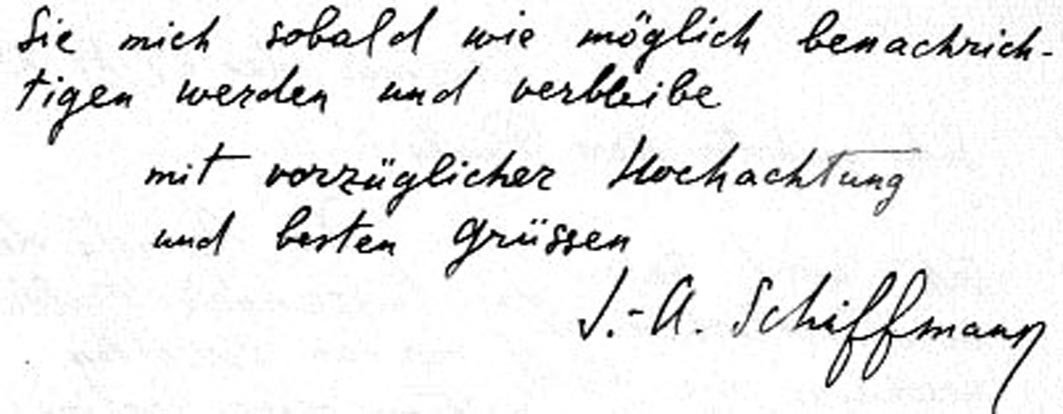 Sie mich sobald wie möglich benachrich-
tigen werden und verbleibe
mit vorzüglicher Hochachtung
und besten Grüssen
J.-A. Schiffmann